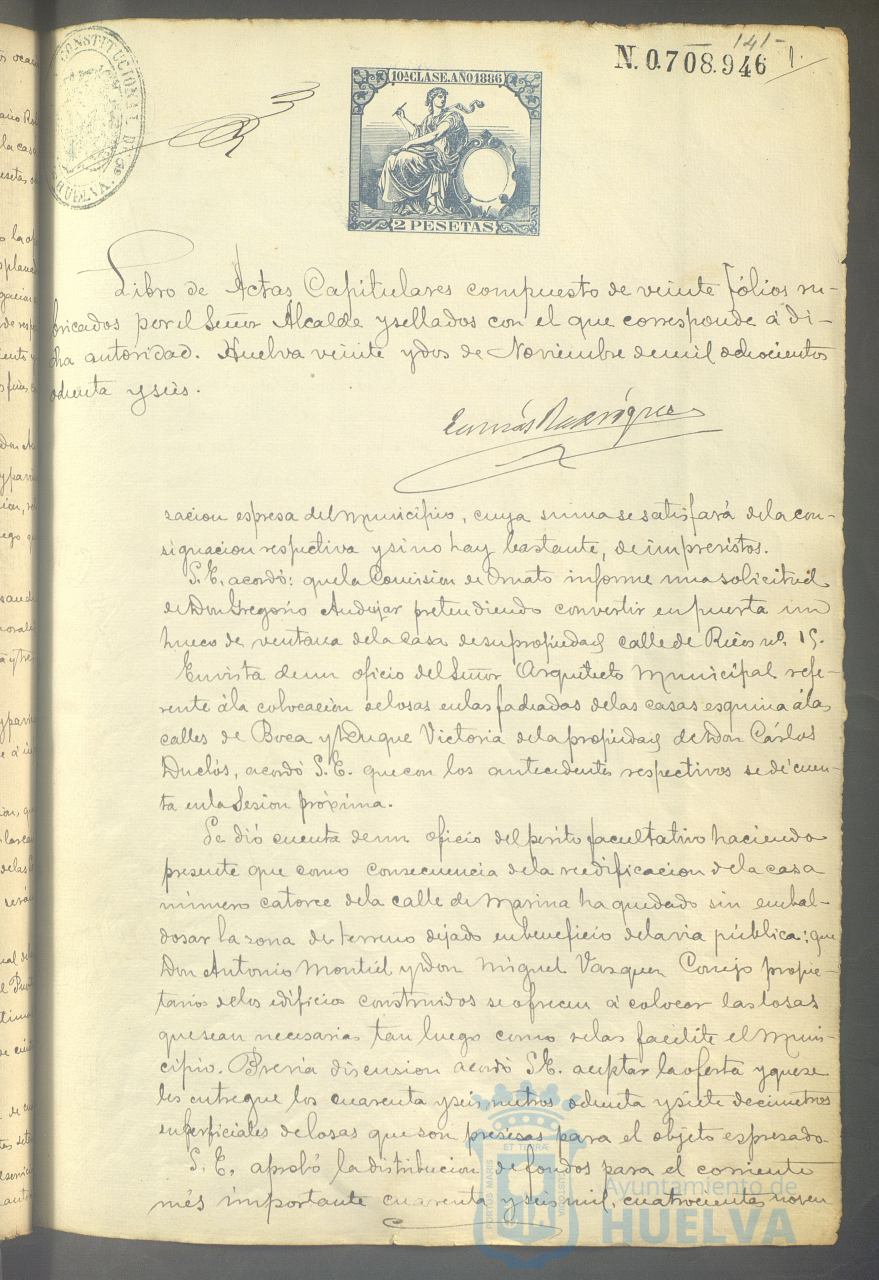 141-
N. 0.708.946 1.
CONSTITUCIONAL DE HUELVA
10ª CLASE. AÑO 1886
2 PESETAS
Libro de Actas Capitulares compuesto de veinte fólios ru-
bricados por el Señor Alcalde y sellados con el que corresponde á di-
cha autoridad. Huelva veinte y dos de Noviembre de mil ochocientos
ochenta y seis.
Tomás Rodríguez
zacion espresa del Municipio, cuya suma se satisfará de la con-
signacion respectiva y si no hay bastante, de imprevistos.
S.E. acordó: que la Comision de Ornato informe una solicitud
de Don Gregorio Andujar pretendiendo convertir en puerta un
hueco de ventana de la casa de su propiedad calle de Ricos nº. 15.
En vista de un oficio del Señor Arquitecto Municipal refe-
rente á la colocacion de losas en las fachadas de las casas esquina á las
calles de Boca y Duque Victoria de la propiedad de Don Cárlos
Duclós, acordó S.E. que con los antecedentes respectivos se dé cuen-
ta en la Sesion próxima.
Se dió cuenta de un oficio del perito facultativo haciendo
presente que como consecuencia de la reedificacion de la casa
número catorce de la calle de Marina ha quedado sin embal-
dosar la zona de terreno dejado en beneficio de la via pública: que
Don Antonio Montiel y Don Miguel Vazquez Conejo propie-
tarios de los edificios construidos se ofrecen á colocar las losas
que sean necesarias tan luego como se las facilite el Muni-
cipio. Prévia discusion acordó S.E. aceptar la oferta y que se
les entregue los cuarenta y seis metros ochenta y siete decimetros
superficiales de losas que son precisas para el objeto espresado
S.E. aprobó la distribucion de fondos para el corriente
més importante cuarenta y seis mil, cuatrocientas noven
Ayuntamiento de
HUELVA